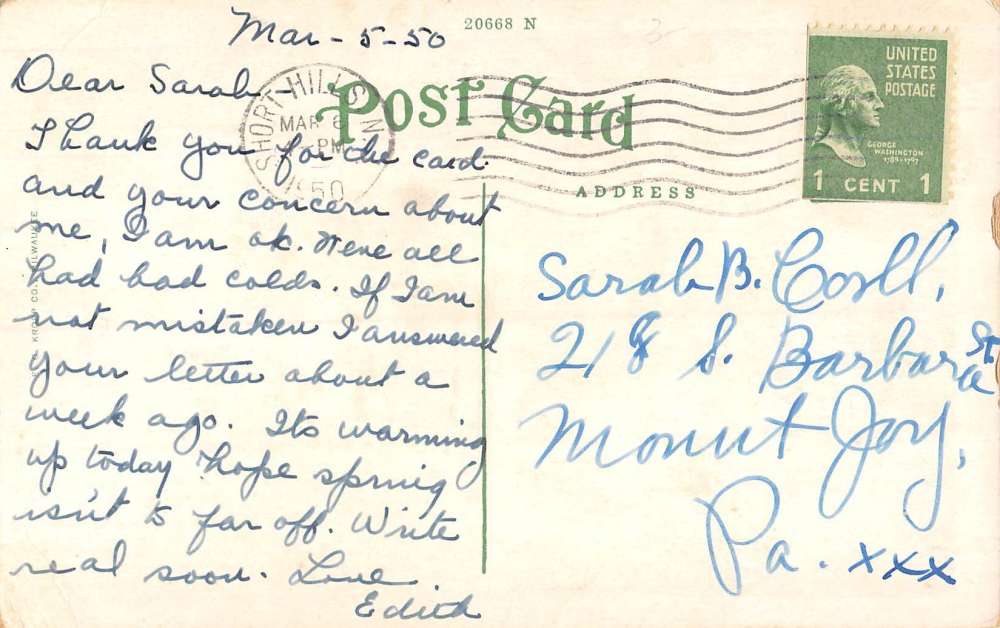 Mar - 5 - 50
20668 N
Dear Sarah -
Post Card
SHORT HILLS N.J.
MAR 6
PM
1950
Thank you for the card
and your concern about
me, I am ok. Weve all
had bad colds. If I am
not mistaken I answered
your letter about a
week ago. Its warming
up today hope spring
isn't to far off. Write
real soon. Love
Edith
KROPP CO. MILWAUKEE
ADDRESS
UNITED
STATES
POSTAGE
GEORGE
WASHINGTON
1789-1797
1 CENT 1
Sarah B.
218 S. Barbara St.
Mount Joy,
Pa. xxx